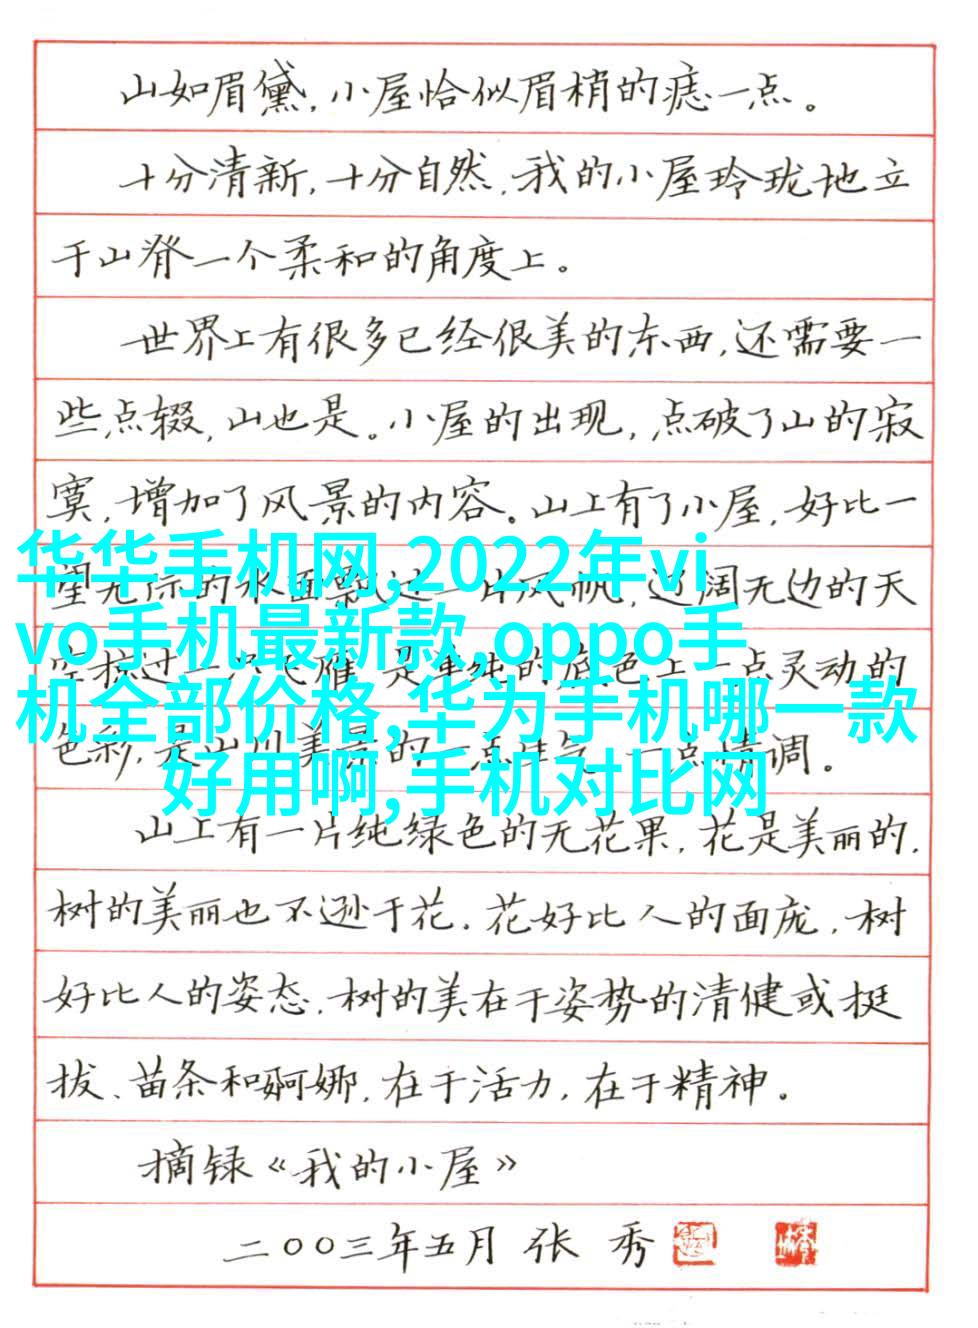 山如眉黛,小屋恰似眉梢的痣一点。
十分清新,十分自然,我的小屋玲珑地立
于山脊一个柔和的角度上。
世界上有很多已经很美的东西,还需要一
些点缀,山也是。小屋的出现,点破了山的寂
寞,增加了风景的内容。山上有了小屋,好比一
华华手机网,2022年vi
望无际的水面飘过一片风帆,辽阔无边的天
vo手机最新款,oppo手
空掠过一只飞雁,是单纯的底色上一点灵动的
机全部价格,华为手机哪一款
色彩,是山川美景的一点生气,一点情调。
好用啊,手机对比网
山上有一片纯绿色的无花果,花是美丽的,
树的美丽也不逊于花。花好比人的面庞,树
好比人的姿态。树的美在于姿势的清健或挺
拔、苗条和婀娜,在于活力,在于精神。
摘录《我的小屋》
二〇〇三年五月 张 秀